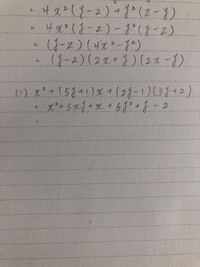 = 4x²(y-z)+y²(z-y)
= 4x²(y-z)-y²(y-z)
= (y-z)(4x²-y²)
= (y-z)(2x+y)(2x-y)
(1) x²+(5y+1)x+(2y-1)(3y+2)
= x²+5xy+x+6y²+y-2
=